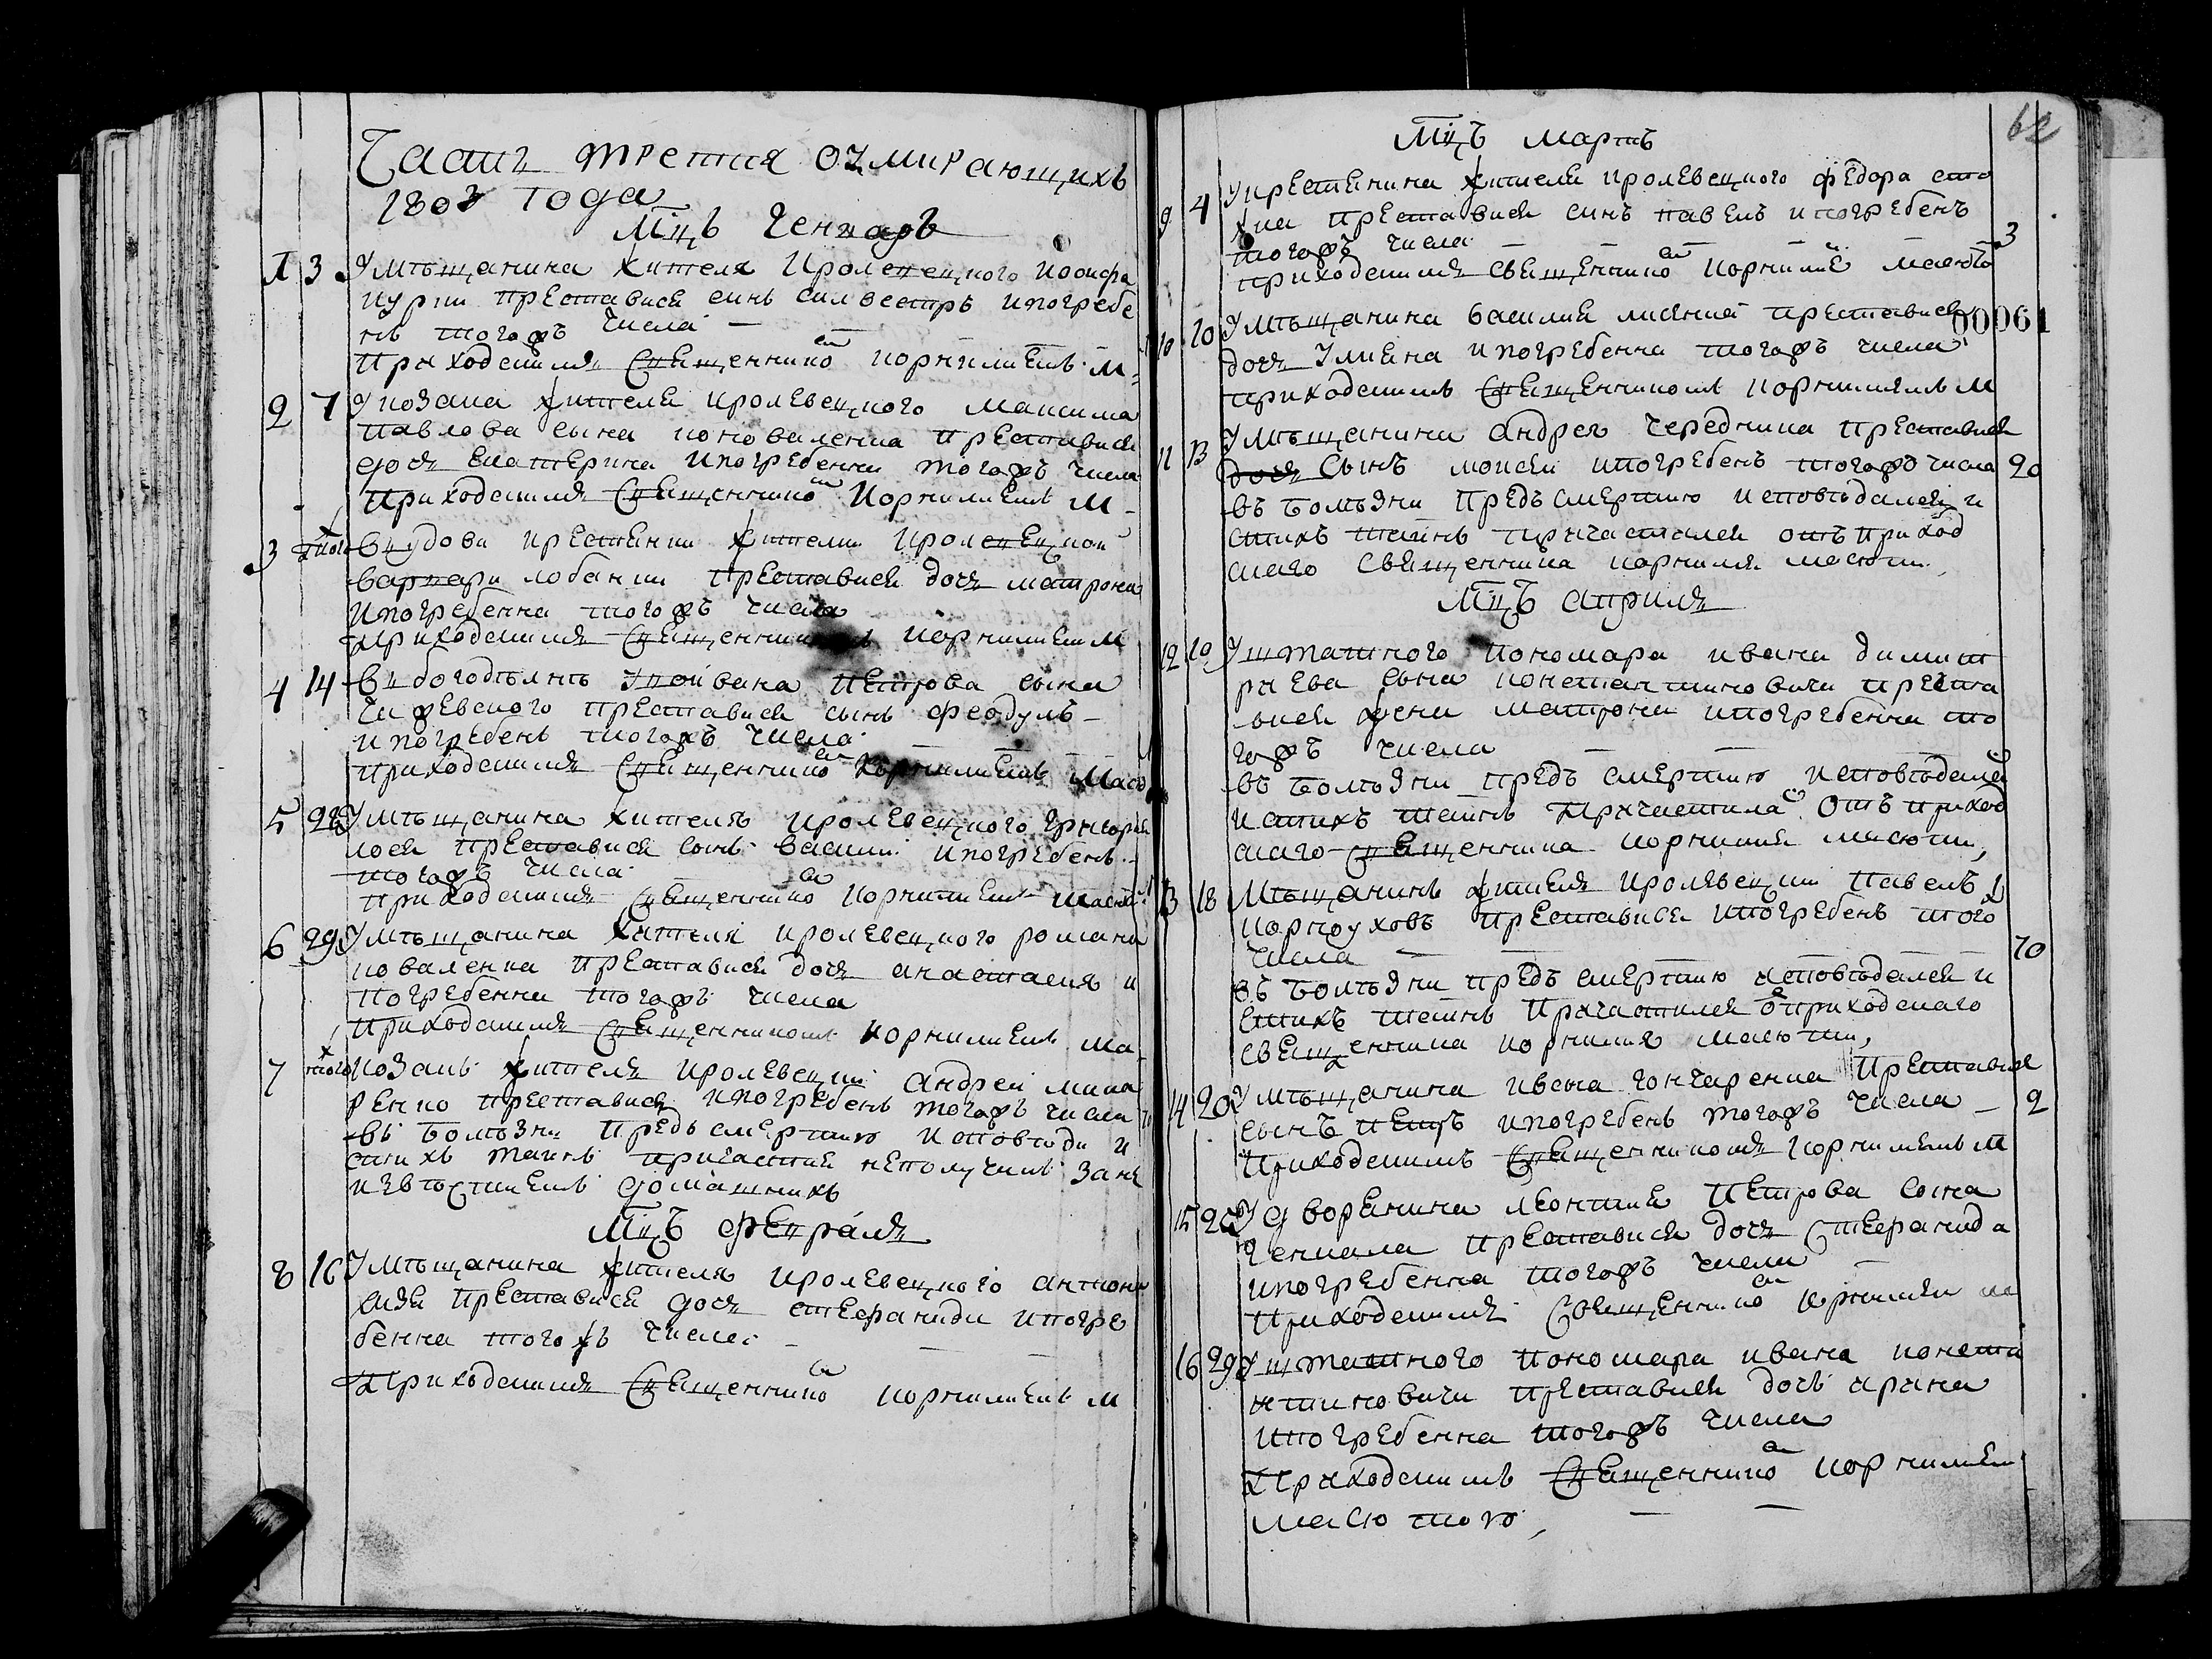 Часть третия о умирающихъ
1803 года
Мцъ Генварь
1 3 У мѣщанина жителя кролевецкого иосифа
преставися синъ силвестръ и погребе
нъ тогожъ числа
приходскимъ священнико корнилиемъ М
2 7 У козака жителя кролевецкого максима
павлова сына коноваленка преставися
дочь екатерина и погребенна тогожъ числа
приходскимъ священнико корнилиемъ М
3 вдови крестянки жителки кролевецкой
варвари лобанки преставися дочь матрона
и погребенна тогожъ числа
приходскимъ священникомъ корнилиемъ М
4 14 в богодѣлнѣ ивана петрова сына
преставися сынъ феодулъ
и погребенъ тогожъ числа
приходскимъ священнико корнилиемъ Масю
5 28 У мѣщанина жителя кролевецкого григория
преставися сынъ василий и погребенъ
тогожъ числа
приходскимъ священнико корнилиемъ Масю
6 29 У мѣщанина жителя кролевецкого романа
коваленка преставися дочь анастасия и
погребенна тогожъ числа
приходскимъ священникомъ корнилиемъ ма
7 козакъ житель кролевецкий андрей мака
ренко преставися и погребенъ тогожъ числа
въ болѣзни предъ смертию исповѣди и
стихъ таинъ причастия неполучилъ за не
извѣстиемъ домашнихъ
Мцъ февраля
8 16 У мѣщанина жителя кролевецкого антона
преставися дочь стефанида и погре
бенна тогожъ числа
приходскимъ священнико корнилиемъ М
62
Мцъ мартъ
9 4 У крестянина жителя кролевецкого федора сто
преставися синъ павелъ и погребенъ
тогожъ числа 3
приходскимъ священнико корнилие масюто
00061
10 10 У мѣщанина василия преставися
дочь улияна и погребенна тогожъ числа
приходскимъ священникомъ корнилиемъ М
11 13 У мѣщанина андрея чередника преставися
дочь сынъ моисей и погребенъ тогожъ числа 20
въ болѣзни предъ смертию исповѣдался и
стихъ таинъ причастился отъ приход
скаго священника корнилия масюти
Мцъ априля
12 10 У штатного пономара ивана димит
риева сына константиновича преста
вися жена матрона и погребенна то
гожъ числа
въ болѣзни предъ смертию исповѣдала
и стихъ таинъ причастила отъ приход
скаго священника корнилия масюти
13 18 Мѣщанинъ житель кролевецкий павелъ
преставися и погребенъ того
числа 70
въ болѣзни предъ смертию исповѣдался и
стихъ таинъ причастился о приходскаго
священника корнилия масюти
14 20 У мѣщанина ивана гончаренка преставися
сынъ петръ и погребенъ тогожъ числа 2
приходскимъ священникомъ корнилиемъ М
15 У дворянина леонтия петрова сына
преставися дочь стефанида
и погребенна тогожъ числа
приходскимъ священнико корнилием ма
16 29 У штатного пономара ивана конста
нтиновича преставися дочь ирина
и погребенна тогожъ числа
приходскимъ священнико корнилием
масютою